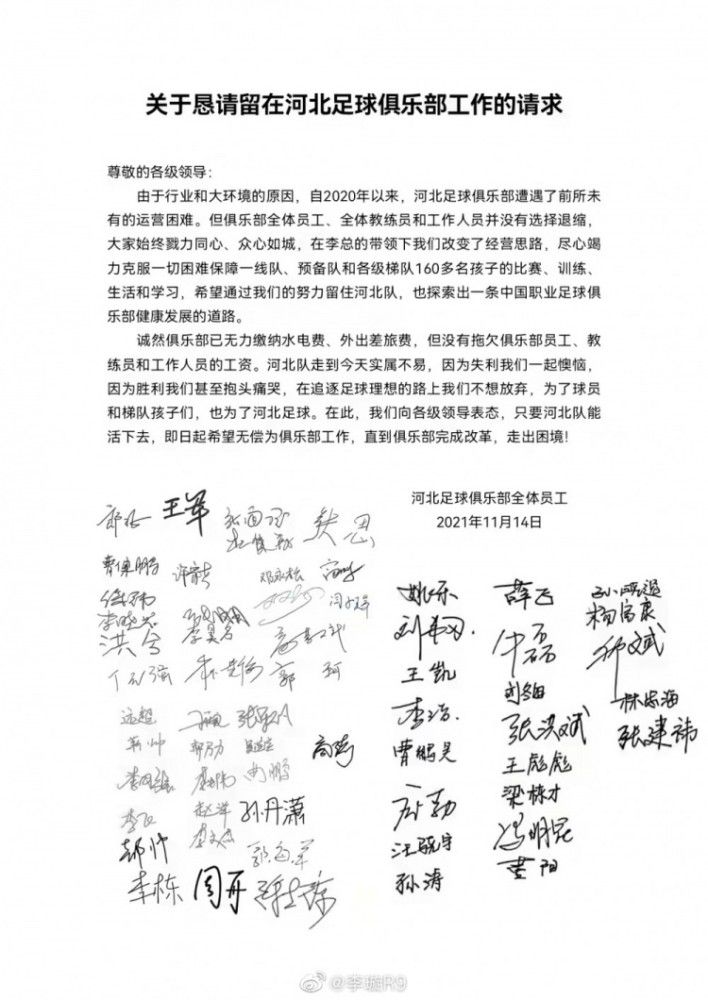 关于恳请留在河北足球俱乐部工作的请求
尊敬的各级领导：
由于行业和大环境的原因，自2020年以来，河北足球俱乐部遭遇了前所未
有的运营困难。但俱乐部全体员工、全体教练员和工作人员并没有选择退缩，
大家始终戮力同心、众心如城，在李总的带领下我们改变了经营思路，尽心竭
力克服一切困难保障一线队、预备队和各级梯队160多名孩子的比赛、训练、
生活和学习，希望通过我们的努力留住河北队，也探索出一条中国职业足球俱
乐部健康发展的道路。
诚然俱乐部已无力缴纳水电费、外出差旅费，但没有拖欠俱乐部员工、教
练员和工作人员的工资。河北队走到今天实属不易，因为失利我们一起懊恼，
因为胜利我们甚至抱头痛哭，在追逐足球理想的路上我们不想放弃，为了球员
和梯队孩子们，也为了河北足球。在此，我们向各级领导表态，只要河北队能
活下去，即日起希望无偿为俱乐部工作，直到俱乐部完成改革，走出困境！
河北足球俱乐部全体员工
2021年11月14日
王军
洪兮
郭珂
远超
高奇
孙丹潇
郭海军
李栋 周开
姚乐 薛飞
杨富康
王凯
刘翔
林宏海
李浩 张洪斌 张建祎
曹鹏昊 王彪彪
梁栋才
汪晓宇 冯明昆
孙涛 董阳
@李璇R9